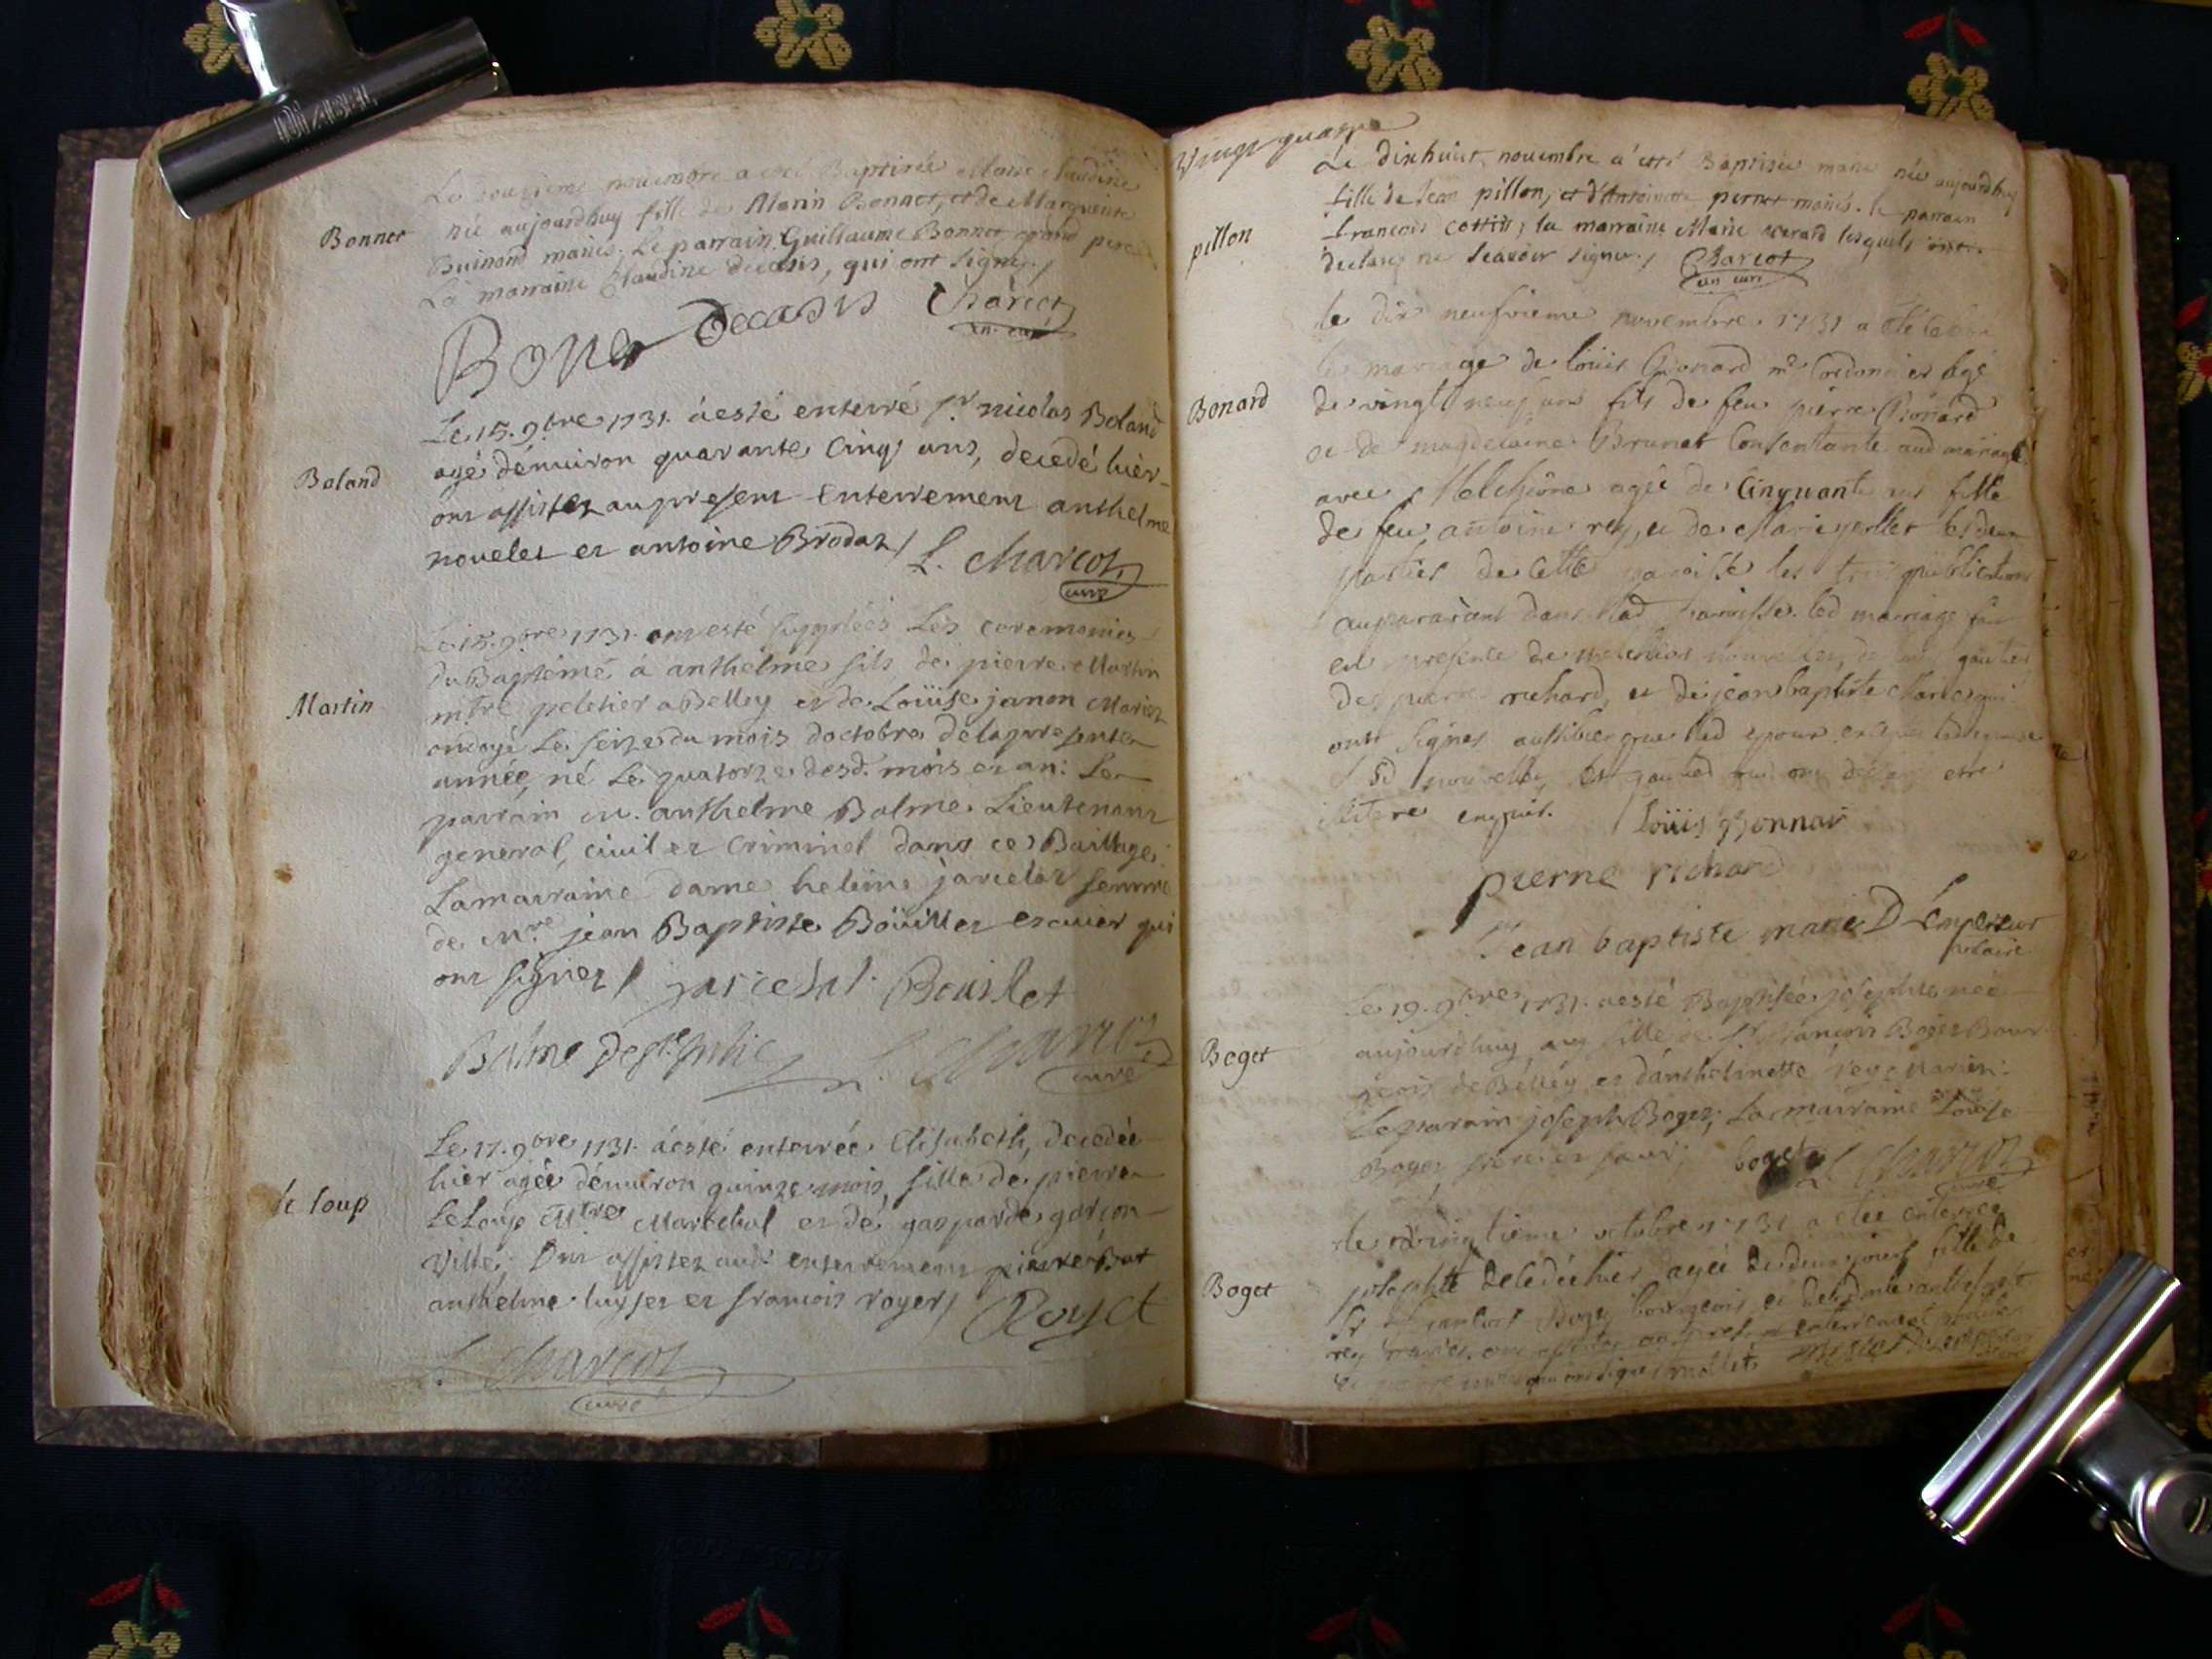 Le douzieme novembre a été Baptisée Marie Claudine
Bonnet
née aujourdhuy fille de Marin Bonnet, et de Marguerite
Buinand mariés; Le parrain Guillaume Bonnet grand pere
La marraine Claudine decasis, qui ont signés./
Bonet Decasis Charcot
Le 15. 9bre 1731. a esté enterré sr nicolas Boland
Boland
agé dénuiron quarante Cinq ans, decedé hier
ont assistez au present Enterrement anthelme
novelet et antoine Brodaz / L. charcot
curé
Le 15. 9bre 1731. ont esté supplées Les ceremonies
du Baptéme a anthelme fils de pierre Martin
Martin
mtre peletier a Belley et de Loüise janon Mariez
ondoyé Le seize du mois doctobre delapresente
année, né Le quatorze desd. mois et an: Le
parrain m. anthelme Balme Lieutenant
general, civil et Criminel dans ce Baillage:
Lamarraine dame helene jarcelat femme
de mre jean Baptiste Böuillet escuier qui
ont signez / jarcelat Bouilet
Balme L. Charcot
curé
Le 17. 9bre 1731. a esté enterrée Elisabeth, decedée
hier agée dénuiron quinze mois, fille de pierre
le loup
Le Loup Mtre Marechal et de gasparde garçon
Ville. Ont assistez aud. enterrement pierre Bot
anthelme luyset et francois royet / Royet
L. Charcot
curé
Vingt quatre
Le dixhuict novembre a esté Baptisée marie née aujourdhuy
fille de Jean pillon, et d'Antoinette pernet mariés. le parrain
pillon
francois cottin; la marraine Marie lesquels ont
declarez ne scavoir signer./ Charcot
le dix neufvieme novembre 1731 a été
le mariage de loüis Bonard me Cordonnier agé
Bonard
de vingt neuf ans fils de feu pierre Bonard
et de magdelaine Brunet Consentante aud mariage
avec Melchione agée de Cinquante ans fille
de feu antoine rey, et de Marie les deux
parties de Cette paroisse les trois publications
auparavant dans lad paroisse. led mariage fait
en presence de nouvellet, de gautier
de pierre richard, et de jean baptiste Marie qui
ont signés aussibien que led epoux
nouvellet, et ont declaré etre
enquis. Loüis Bonnar
pierre richard
Jean baptiste marie D Lempereur
Le 19. 9bre 1731. a esté Baptisée josephte née
Boget
aujourdhuy fille de sr françois Boget Bour
geois de Belley et danthelmette reye Mariez:
Leparain joseph Boget, La marraine Louise
Boget, frere et sœur; boget L. Charcot
curé
le vingtieme octobre 1731 a été enterrée
josephte decedée hier agée de deux jours fille de
Boget
sr francois Boget bourgeois et de
rey mariés. ont assistez au present enterrement